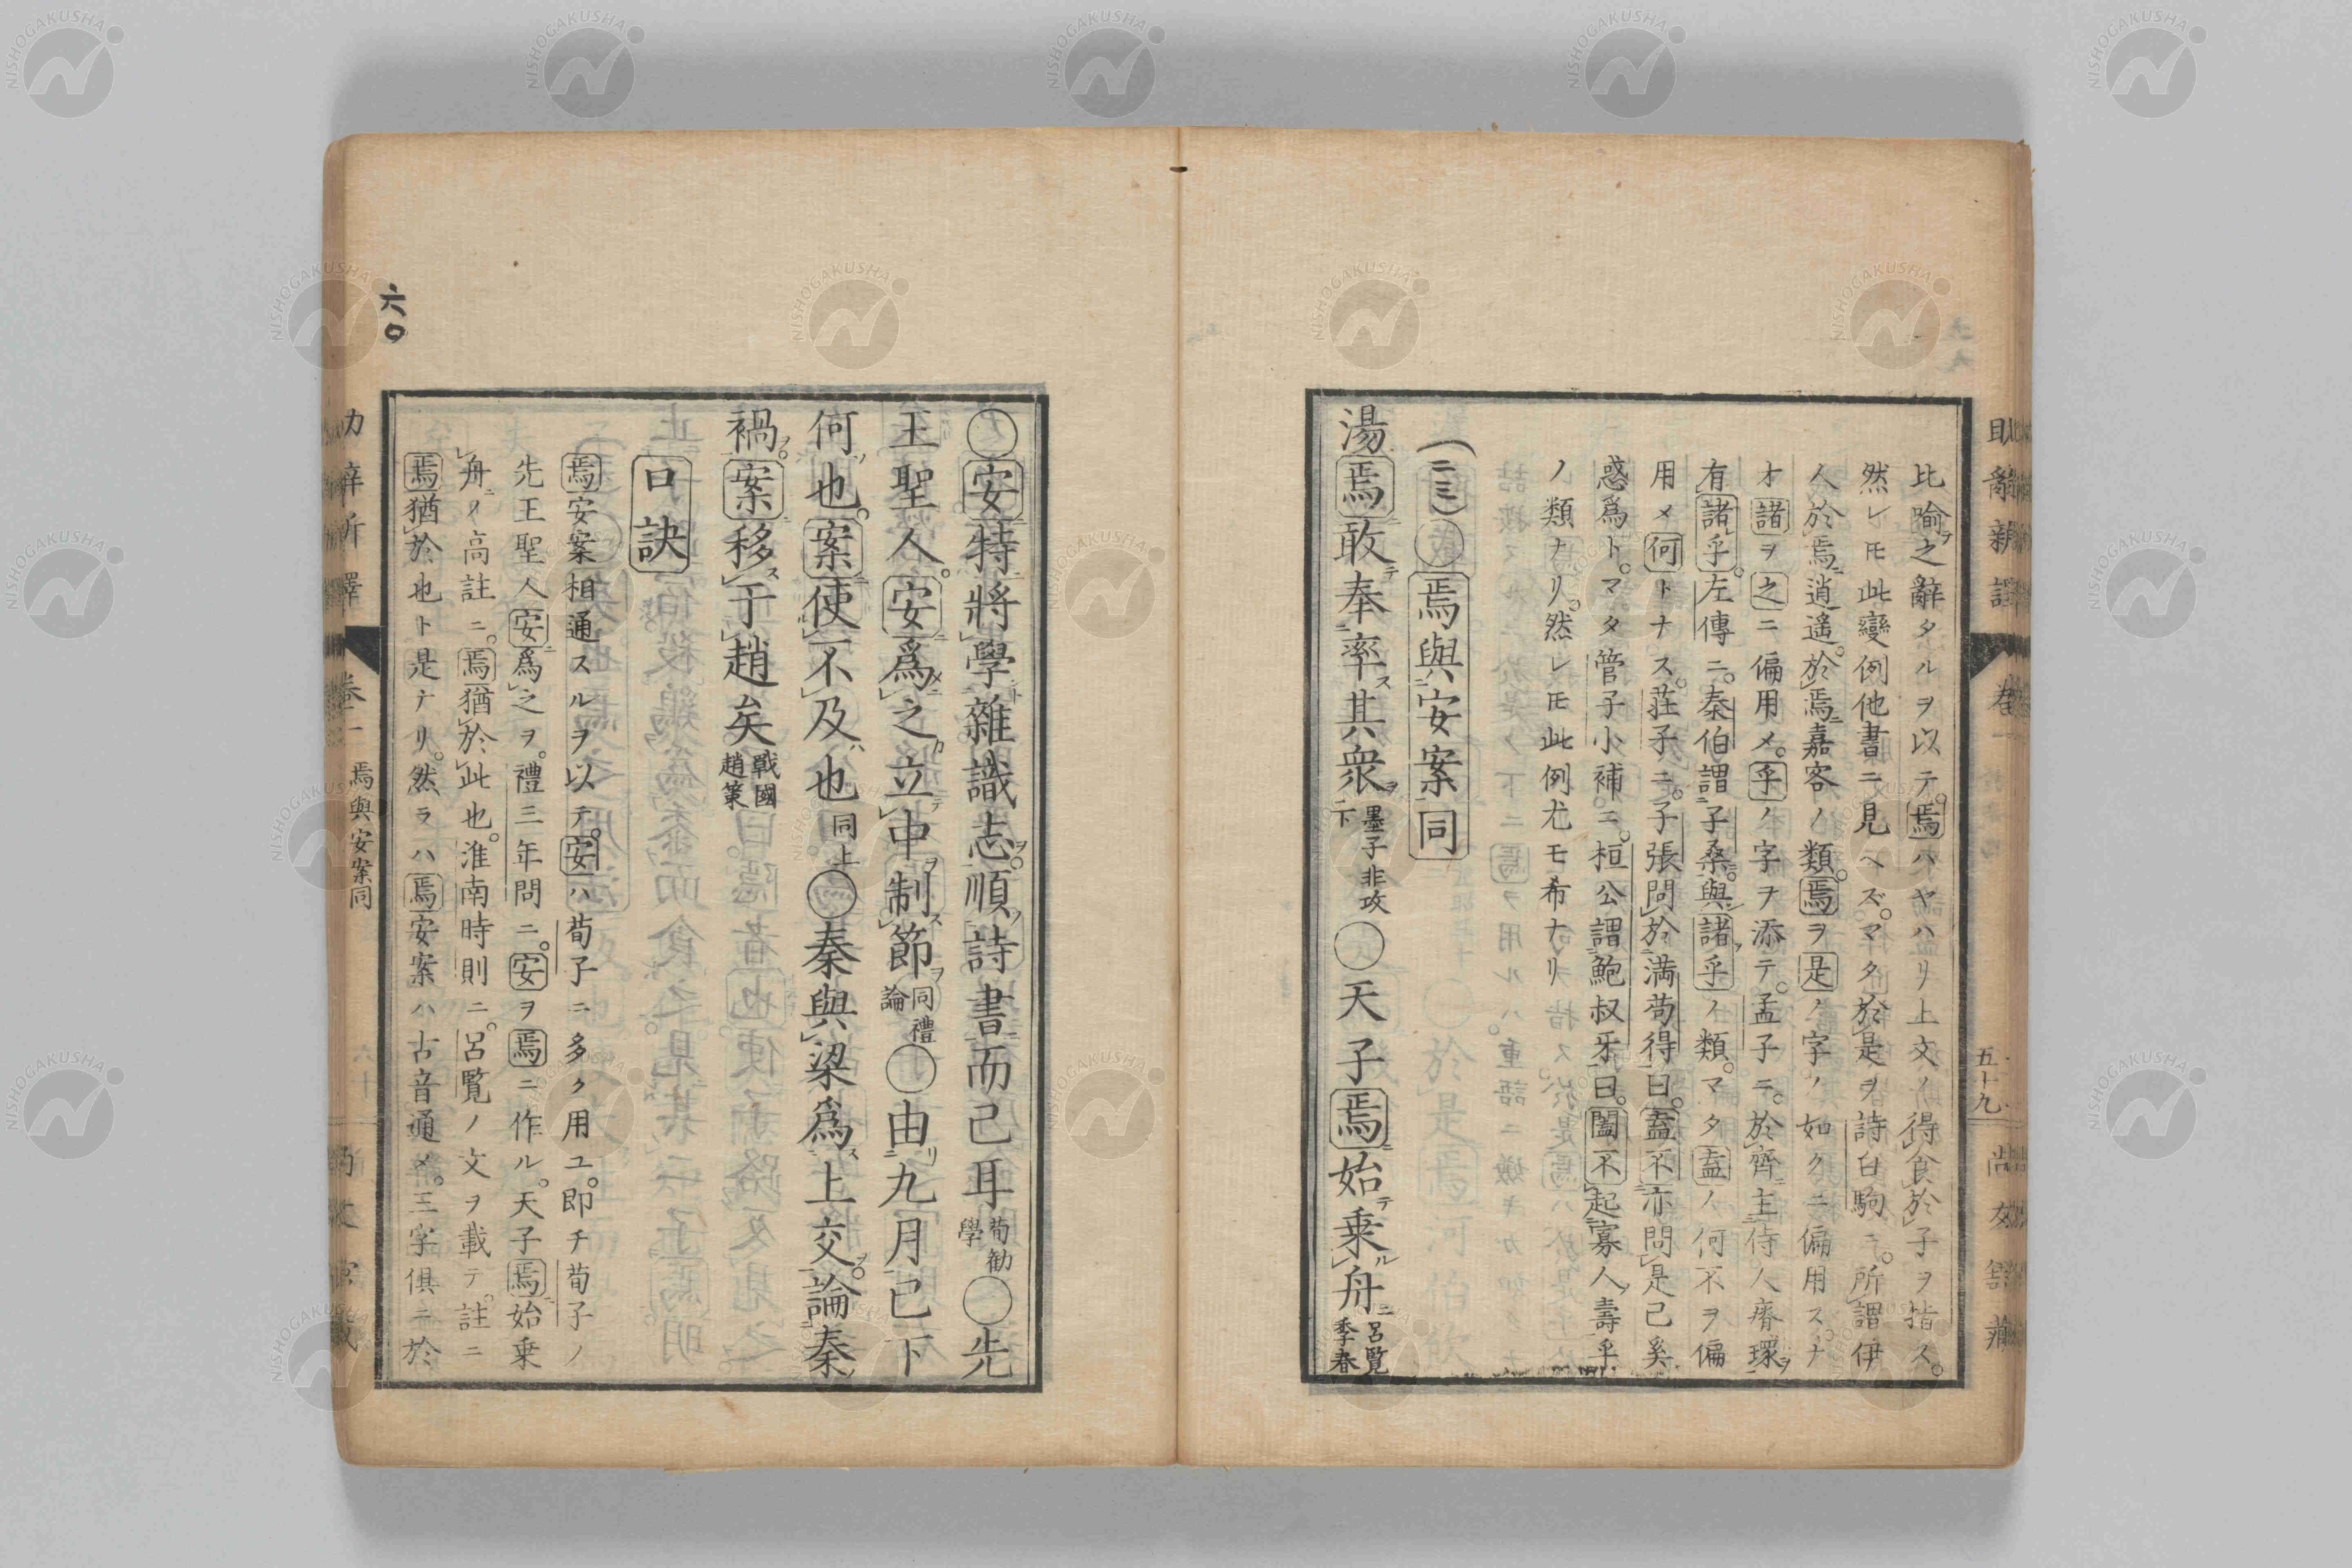 比喩之辭タルヲ以テ。焉ハヤハリ上文ノ得食於子ヲ指ス。
然レ𪜈此變例他書ニ見ヘズ。マタ於是ヲ詩白駒ニ。所謂伊
人於焉逍遙。於焉嘉客ノ類。焉ヲ是ノ字ノ如クニ偏用ス。ナ
オ諸ヲ之ニ偏用メ。乎ノ字ヲ添テ。孟子ニ。於齊主侍人瘠環。
有諸乎。左傳ニ。秦伯謂子桑。與諸乎ノ類。マタ盍ノ何不ヲ偏
用メ何トナス。莊子ニ。子張問於満苟得曰。盍不亦問是已奚
惑爲ト。マタ管子小補ニ。桓公謂鮑叔牙曰。闔不起寡人壽乎
ノ類ナリ。然レ𪜈此例尤モ希ナリ
(二三)〇焉與安案同
湯焉敢奉率其衆墨子非攻下〇天子焉始乗舟呂覧季春
〇安特將學雜識志。順詩書而已耳荀勧學〇先
王聖人。安爲之立中制節同禮論〇由九月已下
何也。案使不及也同上〇秦與梁爲上交。論秦
禍。案移于趙矣戰國趙策
口訣
焉安案相通スルヲ以テ。安ハ荀子ニ多ク用ユ。即チ荀子ノ
先王聖人安爲之ヲ。禮三年問ニ。安ヲ焉ニ作ル。天子焉始乗
舟ノ高註ニ。焉猶於此也。淮南時則ニ。呂覧ノ文ヲ載テ。註ニ
焉猶於也ト是ナリ。然ラハ焉安案ハ古音通メ。三字倶ニ於
卷一
五十九
六〇
卷一
焉與安案同
NISHOGAKUSHA